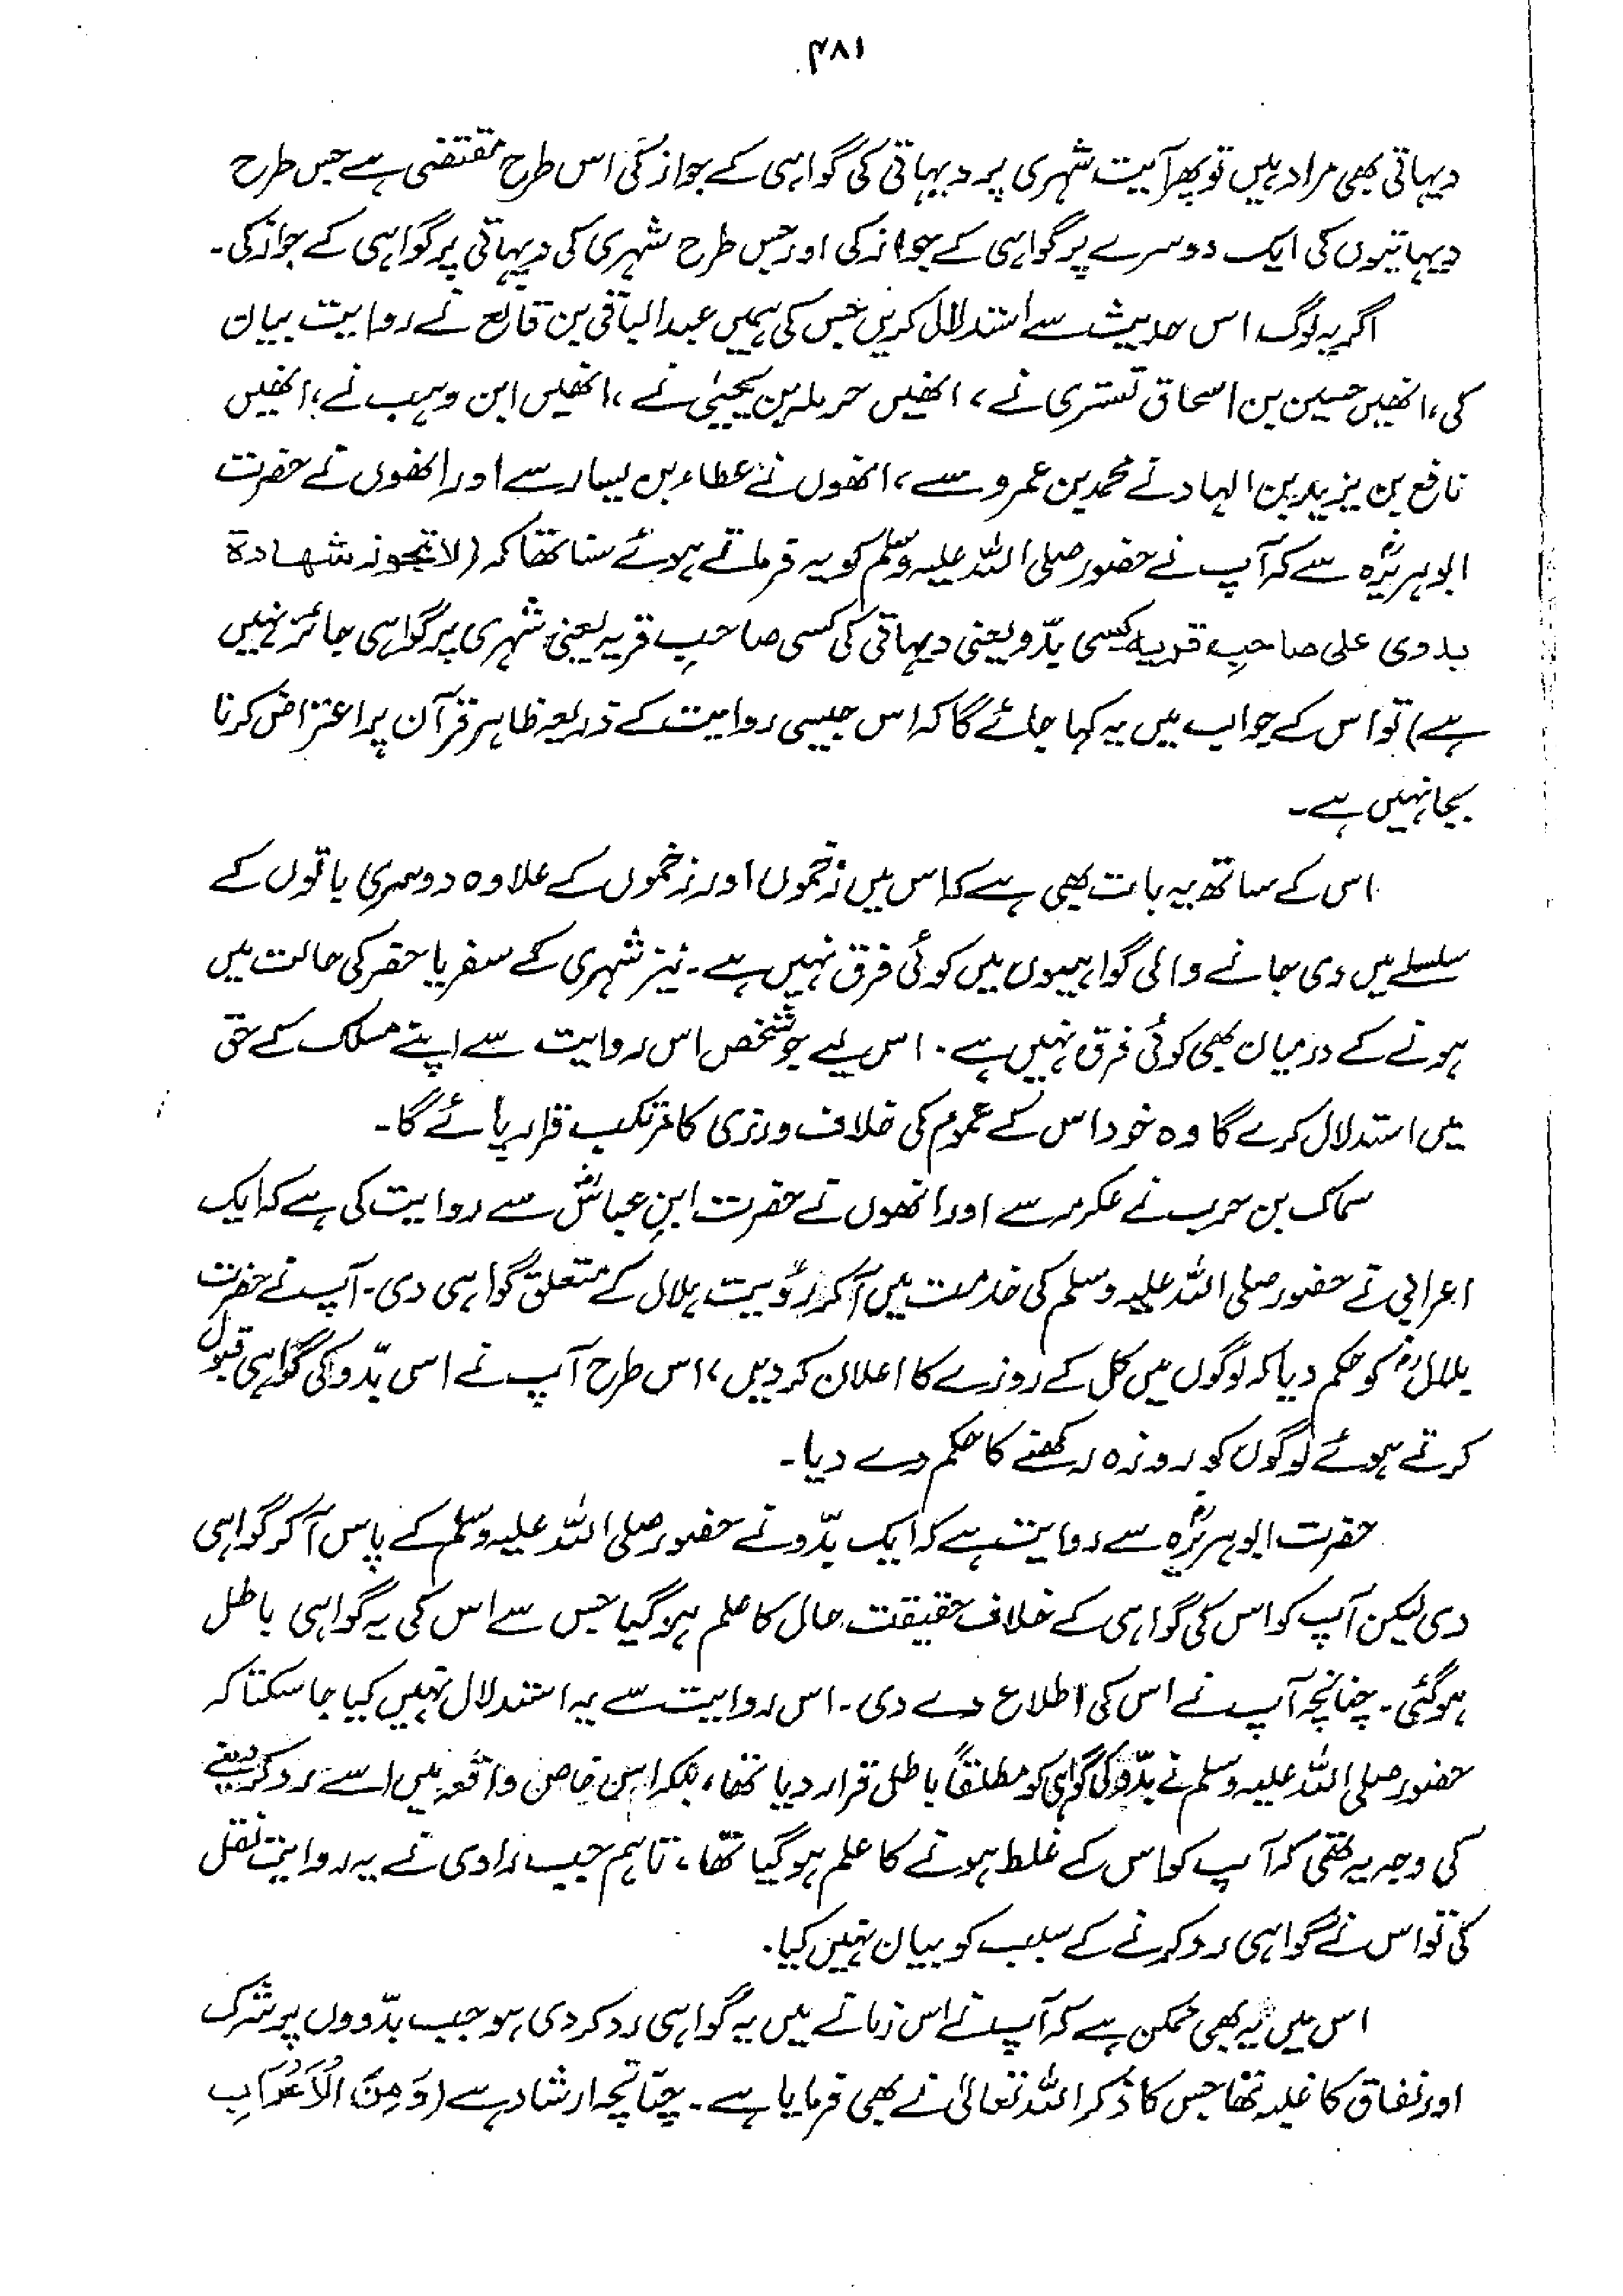 ۴۸۱
دیہاتی بھی مراد ہیں تو پھر آیت شہری پر دیہاتی کی گواہی کے جواز کی اس طرح مقتضی ہے جس طرح
دیہاتیوں کی ایک دوسرے پر گواہی کے جواز کی اور جس طرح شہری کی دیہاتی پر گواہی کے جواز کی۔
اگر یہ لوگ اس حدیث سے استدلال کریں جس کی ہمیں عبدالباقی بن قانع نے روایت بیان
کی، انھیں حسین بن اسحاق تستری نے، انھیں حرملہ بن یحییٰ نے، انھیں ابن وہب نے، انھیں
نافع بن یزید بن الہاد نے محمد بن عمرو سے، انھوں نے عطاء بن یسار سے اور انھوں نے حضرت
ابوہریرہؓ سے کہ آپ نے حضور صلی اللہ علیہ وسلم کو یہ فرماتے ہوئے سنا تھا کہ (لا تجوز شهادة
بدوی علی صاحب قریه کسی بدّو یعنی دیہاتی کی کسی صاحبِ قریہ یعنی شہری پر گواہی جائز نہیں
ہے) تو اس کے جواب میں یہ کہا جائے گا کہ اس جیسی روایت کے ذریعہ ظاہر قرآن پر اعتراض کرنا
بجا نہیں ہے۔
اس کے ساتھ یہ بات بھی ہے کہ اس میں زخموں اور زخموں کے علاوہ دوسری باتوں کے
سلسلے میں دی جانے والی گواہیوں میں کوئی فرق نہیں ہے۔ نیز شہری کے سفر یا حضر کی حالت میں
ہونے کے درمیان بھی کوئی فرق نہیں ہے۔ اس لیے جو شخص اس روایت سے اپنے مسلک کے حق
میں استدلال کرے گا وہ خود اس کے عموم کی خلاف ورزی کا مرتکب قرار پائے گا۔
سماک بن حرب نے عکرمہ سے اور انھوں نے حضرت ابنِ عباسؓ سے روایت کی ہے کہ ایک
اعرابی نے حضور صلی اللہ علیہ وسلم کی خدمت میں آکر رؤیت ہلال کے متعلق گواہی دی۔ آپ نے حضرت
بلالؓ کو حکم دیا کہ لوگوں میں کل کے روزے کا اعلان کر دیں، اس طرح آپ نے اسی بدّو کی گواہی قبول
کرتے ہوئے لوگوں کو روزہ رکھنے کا حکم دے دیا۔
حضرت ابوہریرہؓ سے روایت ہے کہ ایک بدّو نے حضور صلی اللہ علیہ وسلم کے پاس آکر گواہی
دی لیکن آپ کو اس کی گواہی کے خلاف حقیقت حال کا علم ہوگیا جس سے اس کی یہ گواہی باطل
ہوگئی۔ چنانچہ آپ نے اس کی اطلاع دے دی۔ اس روایت سے یہ استدلال نہیں کیا جا سکتا کہ
حضور صلی اللہ علیہ وسلم نے بدّو کی گواہی کو مطلقاً باطل قرار دیا تھا، بلکہ اس خاص واقعہ میں اسے رد کر دینے
کی وجہ یہ تھی کہ آپ کو اس کے غلط ہونے کا علم ہوگیا تھا، تاہم جب راوی نے یہ روایت نقل
کی تو اس نے گواہی رد کرنے کے سبب کو بیان نہیں کیا۔
اس میں یہ بھی ممکن ہے کہ آپ نے اس زمانے میں یہ گواہی رد کر دی ہو جب بدّووں پر شرک
اور نفاق کا غلبہ تھا جس کا ذکر اللہ تعالیٰ نے بھی فرمایا ہے۔ چنانچہ ارشاد ہے (وَمِنَ الْاَعْرَابِ